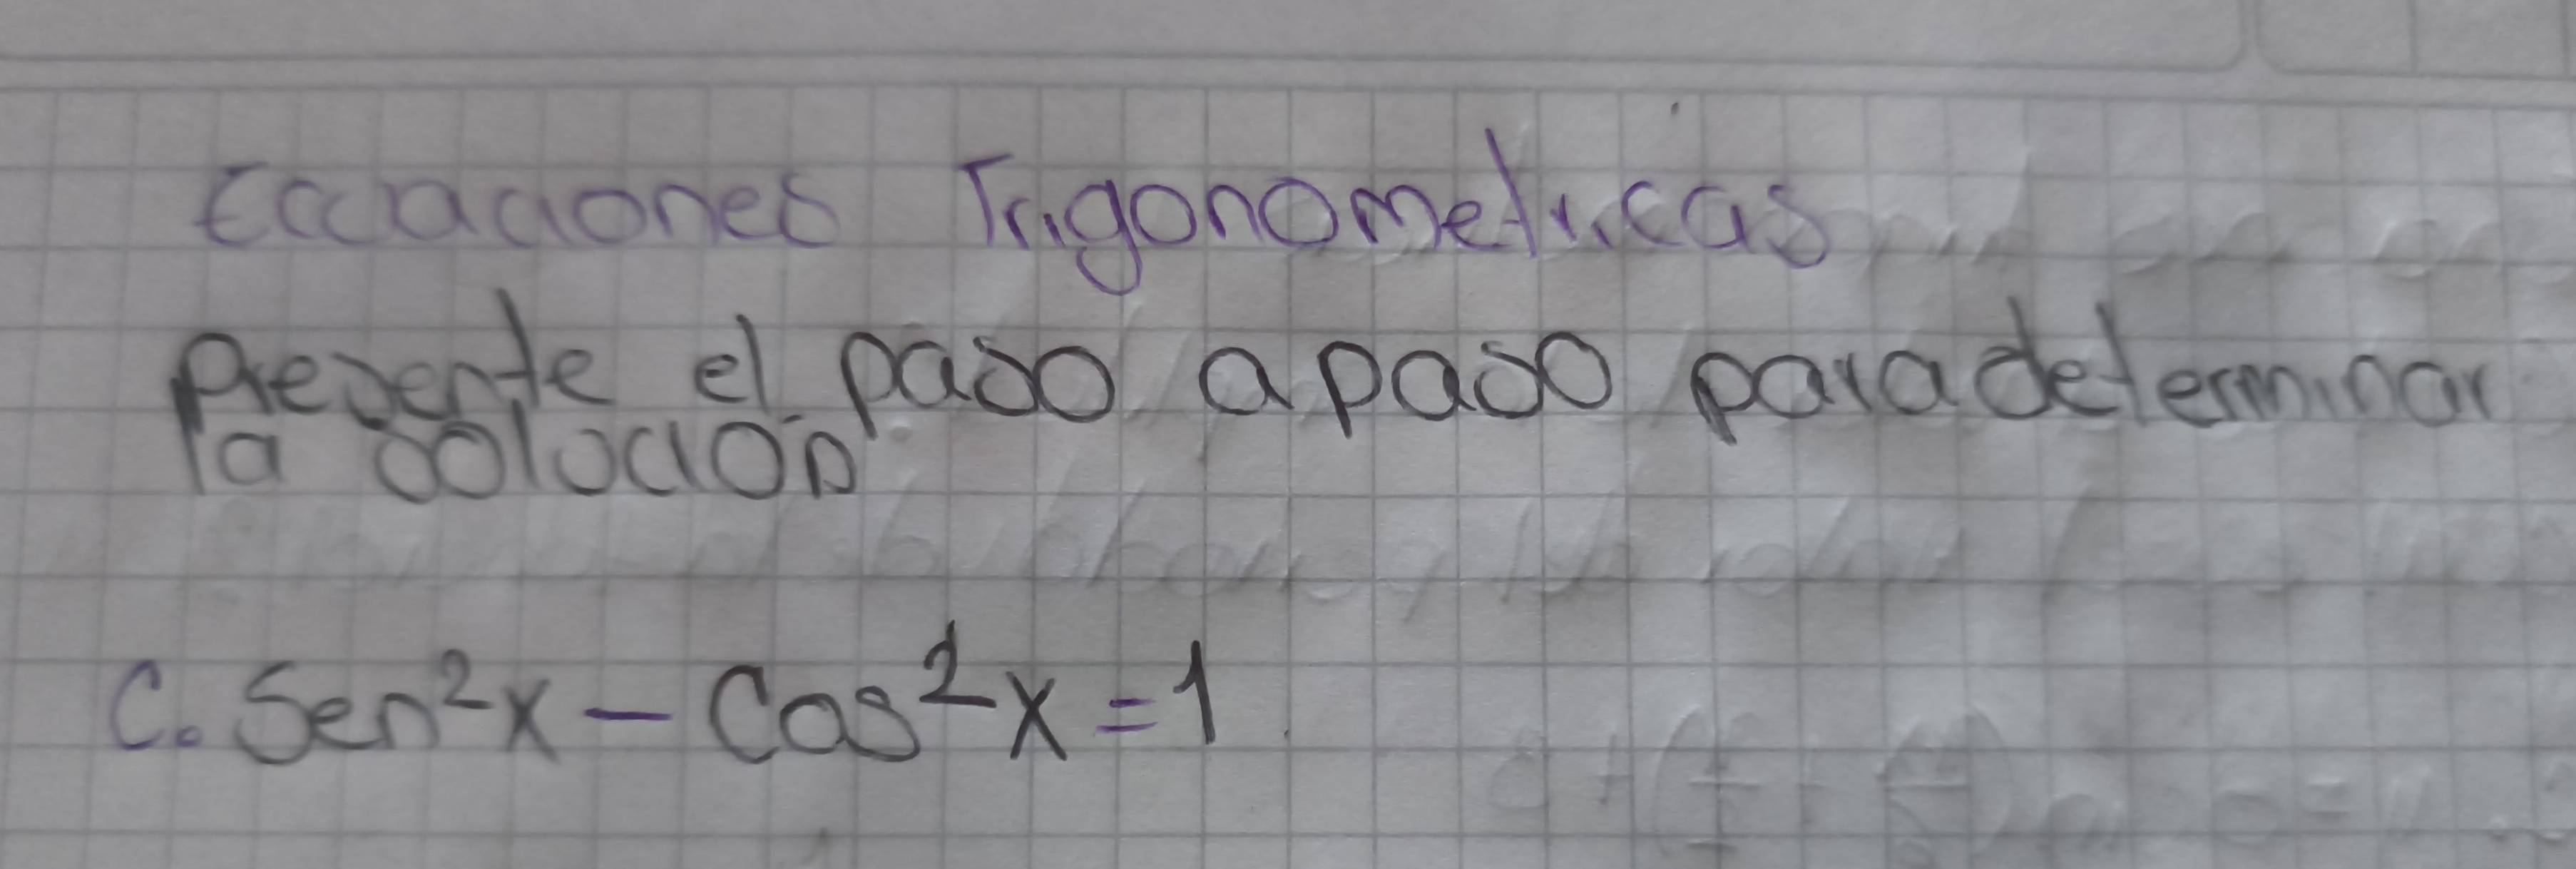 Ecuaciones Trigonometricas
Presente el paso a paso para determinar
la solución
C. Sen²x - Cos²x = 1